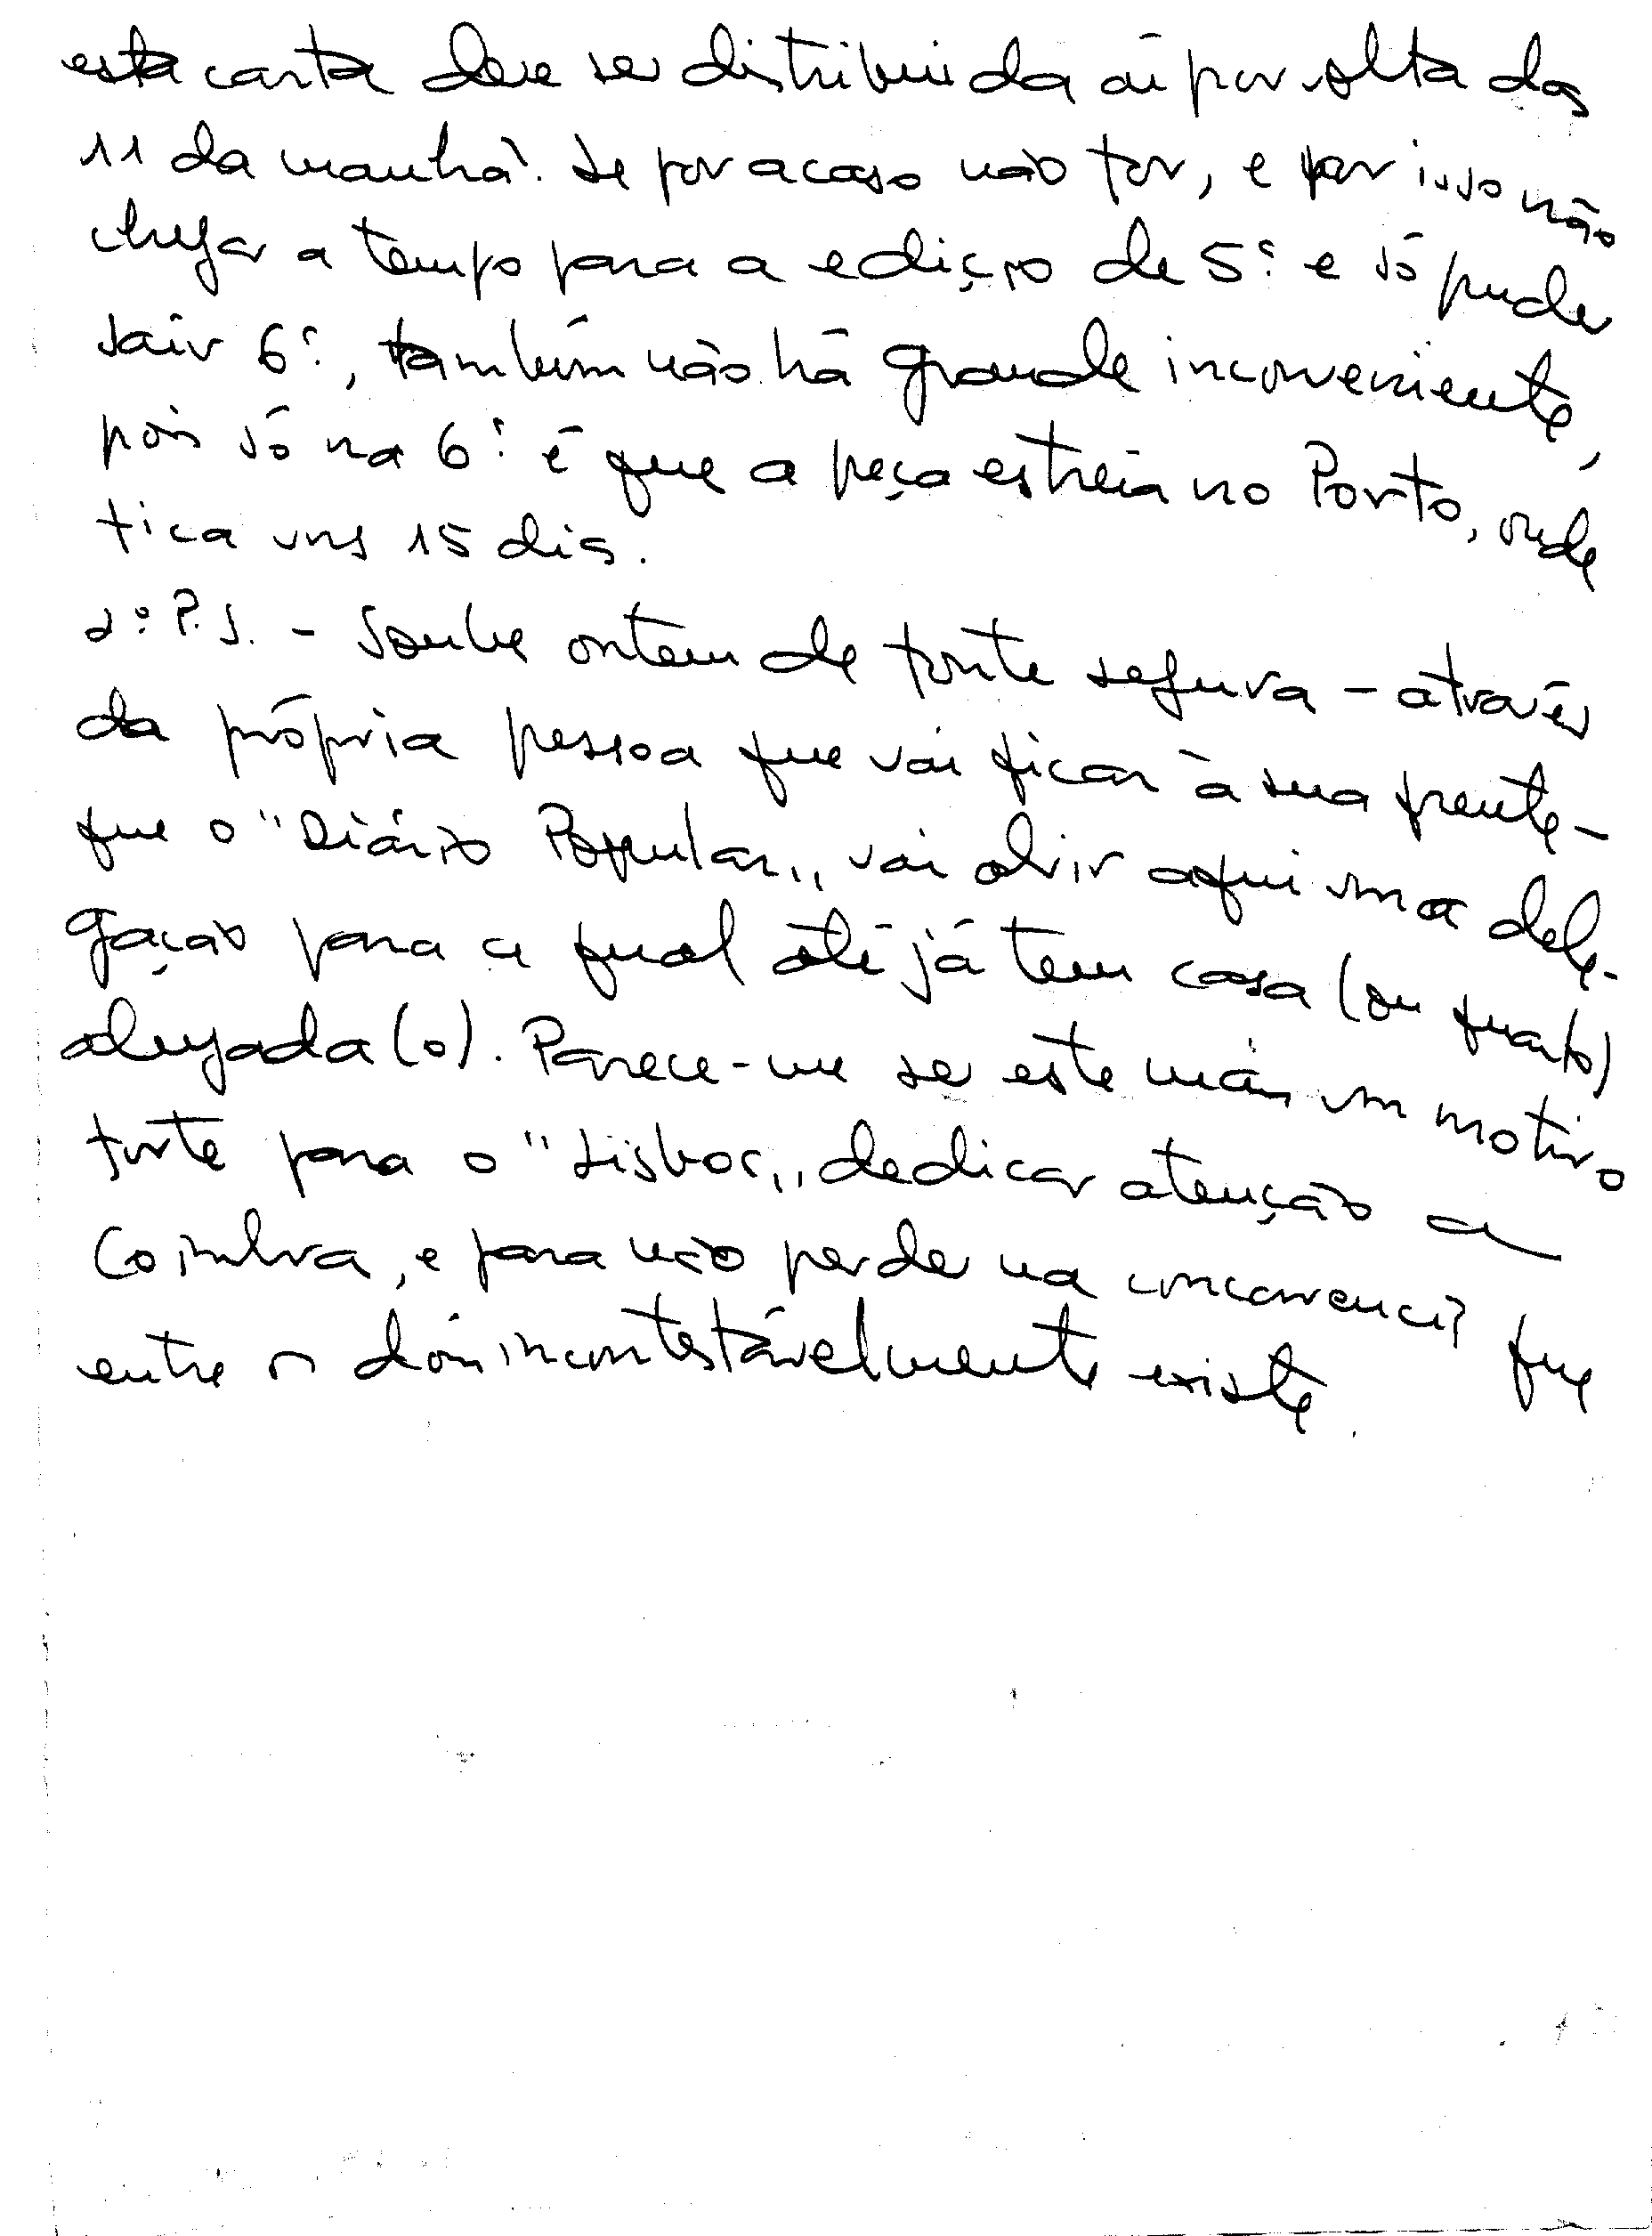 esta carta deve ser distribuida aí por volta das
11 da manhã. Se por acaso não for, e por isso não
chegar a tempo para a edição de 5ª e só puder
sair 6ª, também não há grande inconveniente,
pois só na 6ª é que a peça estreia no Porto, onde
fica uns 15 dias.
2º P.S. - Soube ontem de fonte segura - através
da própria pessoa que vai ficar à sua frente -
que o "Diário Popular" vai abrir aqui uma dele-
gação para a qual até já tem casa (ou quarto)
alugada (o). Parece-me ser este mais um motivo
forte para o "Lisboa" dedicar atenção a
Coimbra, e para não perder na concorrencia que
entre os dois incontestávelmente existe.